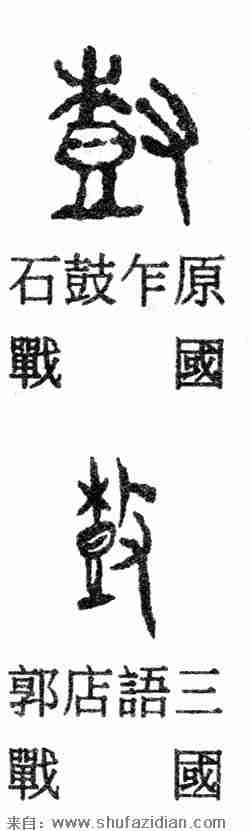 石鼓乍原
戰國
郭店語三
戰國
来自：www.shufazidian.com